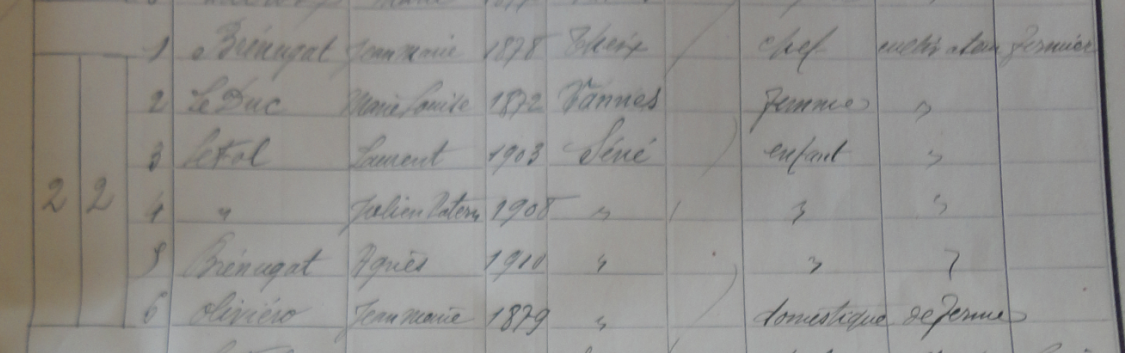 1 Brénugat Jean marie 1878 Theix chef cultivateur fermier
2 Le Duc Marie Louise 1872 Vannes femme "
3 Le Fol Laurent 1903 Séné enfant "
2 2 4 " Julien 1908 " " "
5 Brénugat Agnès 1910 " " "
6 Oliviéro Jean marie 1879 " domestique de ferme